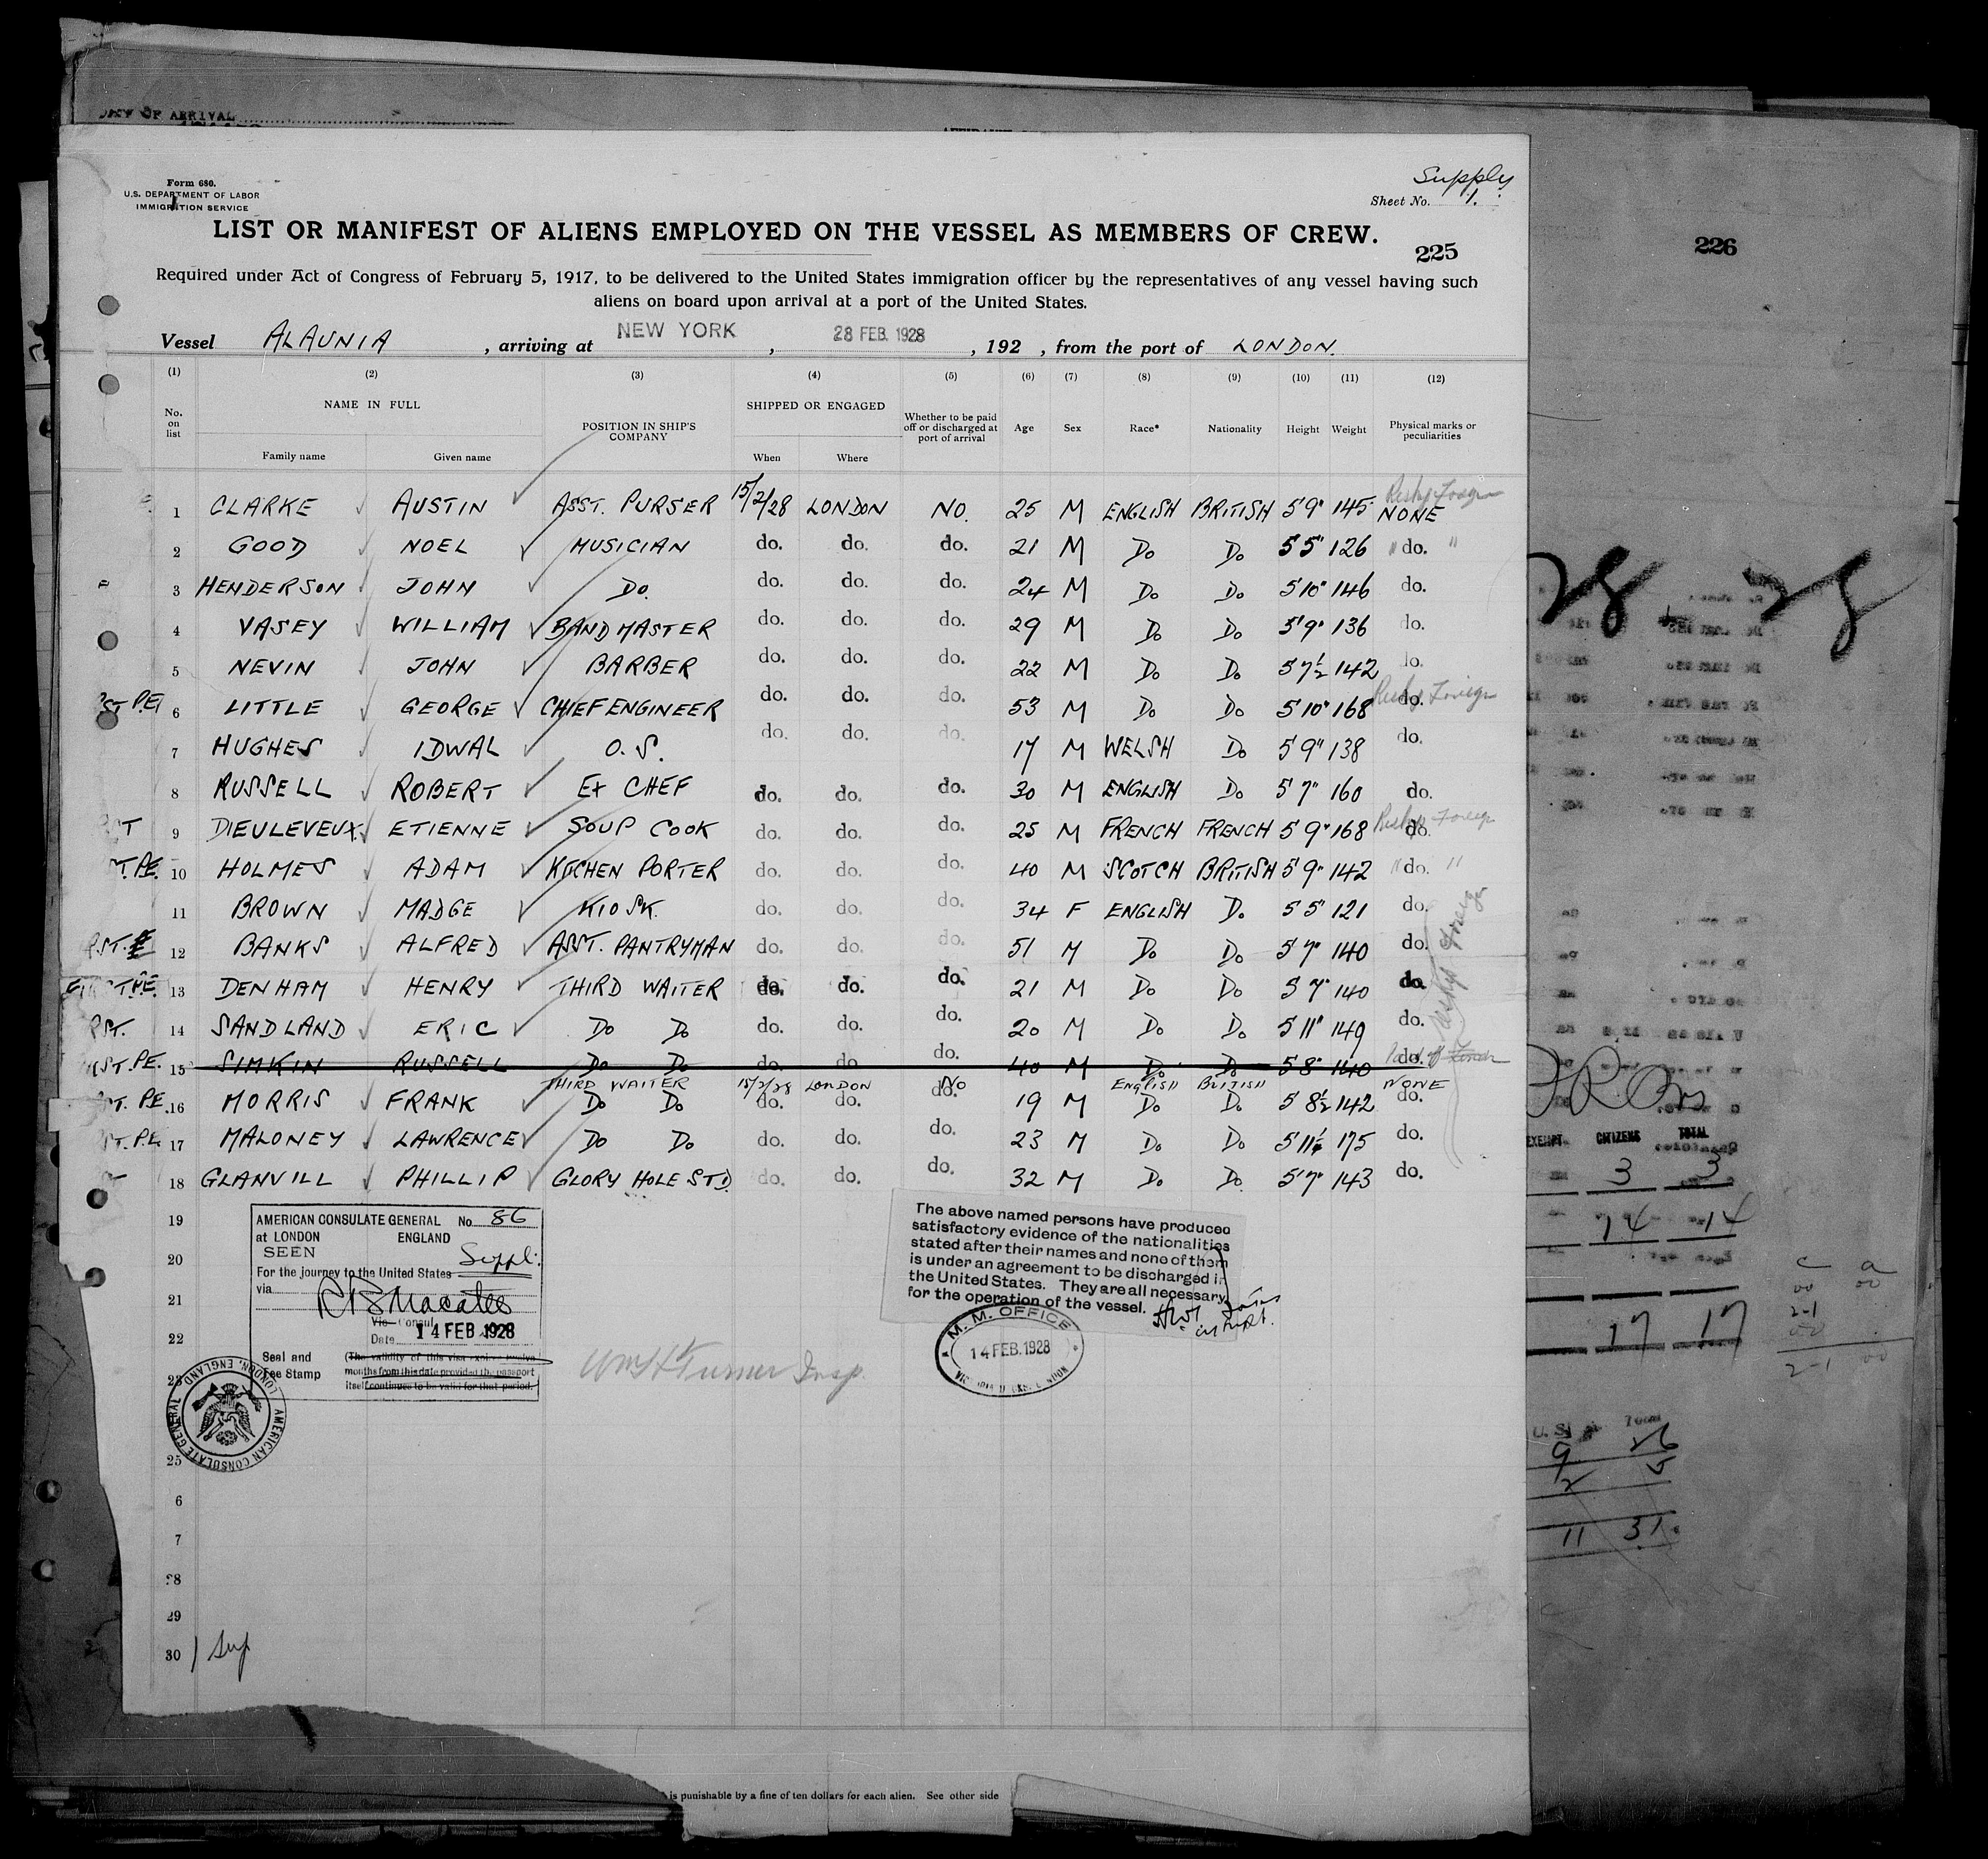 DAY OF ARRIVAL
Form 680.
U.S. DEPARTMENT OF LABOR
IMMIGRATION SERVICE
Supply
Sheet No. 1.
LIST OR MANIFEST OF ALIENS EMPLOYED ON THE VESSEL AS MEMBERS OF CREW.
225
226
Required under Act of Congress of February 5, 1917, to be delivered to the United States immigration officer by the representatives of any vessel having such
aliens on board upon arrival at a port of the United States.
Vessel ALAUNIA, arriving at NEW YORK, 28 FEB. 1928, 192 , from the port of LONDON.
(1) (2) (3) (4) (5) (6) (7) (8) (9) (10) (11) (12)
No. on list NAME IN FULL Family name Given name POSITION IN SHIP'S COMPANY SHIPPED OR ENGAGED When Where Whether to be paid off or discharged at port of arrival Age Sex Race* Nationality Height Weight Physical marks or peculiarities
1 CLARKE AUSTIN ASST. PURSER 15/2/28 LONDON NO. 25 M ENGLISH BRITISH 5'9" 145 NONE
2 GOOD NOEL MUSICIAN do. do. do. 21 M Do Do 5'5" 126 " do. "
3 HENDERSON JOHN Do. do. do. do. 24 M Do Do 5'10" 146 do.
4 VASEY WILLIAM BANDMASTER do. do. do. 29 M Do Do 5'9" 136 do.
5 NEVIN JOHN BARBER do. do. do. 22 M Do Do 5'7½ 142 do.
ST P.E. 6 LITTLE GEORGE CHIEF ENGINEER do. do. do. 53 M Do Do 5'10" 168 do.
7 HUGHES IDWAL O.S. do. do. do. 17 M WELSH Do 5'9" 138 do.
8 RUSSELL ROBERT Ex CHEF do. do. do. 30 M ENGLISH Do 5'7" 160 do.
9 DIEULEVEUX ETIENNE SOUP COOK do. do. do. 25 M FRENCH FRENCH 5'9" 168 do.
ST. P.E. 10 HOLMES ADAM KITCHEN PORTER do. do. do. 40 M SCOTCH BRITISH 5'9" 142 " do. "
11 BROWN MADGE KIOSK. do. do. do. 34 F ENGLISH Do 5'5" 121 do.
RST. 12 BANKS ALFRED ASST. PANTRYMAN do. do. do. 51 M Do Do 5'7" 140 do.
13 DENHAM HENRY THIRD WAITER do. do. do. 21 M Do Do 5'7" 140 do.
RST. 14 SANDLAND ERIC Do Do do. do. do. 20 M Do Do 5'11" 149 do.
ST. P.E. 15 SIMKIN RUSSELL Do Do do. do. do. 40 M Do Do 5'8" 140 do.
THIRD WAITER 15/2/28 LONDON No ENGLISH BRITISH NONE
ST. P.E. 16 MORRIS FRANK Do Do do. do. do. 19 M Do Do 5'8½ 142 do.
ST. P.E. 17 MALONEY LAWRENCE Do Do do. do. do. 23 M Do Do 5'11½ 175 do.
18 GLANVILL PHILLIP GLORY HOLE STD. do. do. do. 32 M Do Do 5'7" 143 do.
19
20
21
22
23
25
6
7
28
29
30 / Sup
AMERICAN CONSULATE GENERAL No. 86
at LONDON ENGLAND
SEEN
Suppl.
For the journey to the United States
via
Vice Consul
Date 14 FEB. 1928
Seal and
Fee Stamp
(The validity of this visa expires twelve
months from this date provided the passport
itself continues to be valid for that period.
AMERICAN CONSULATE GENERAL LONDON, ENGLAND
The above named persons have produced
satisfactory evidence of the nationalities
stated after their names and none of them
is under an agreement to be discharged in
the United States. They are all necessary
for the operation of the vessel.
M. M. OFFICE
14 FEB. 1928
Wm H Turner Insp.
is punishable by a fine of ten dollars for each alien. See other side
28 28
EXEMPT CITIZENS TOTAL
3 3
14 14
17 17
9 26
2 5
11 31